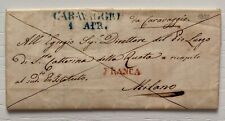 CARAVAGGIO
1 APR.
da Caravaggio
All' Egregio Sig.r Direttore del Pio Luogo
di S.ta Catterina della Ruota a recapito
FRANCA
Milano